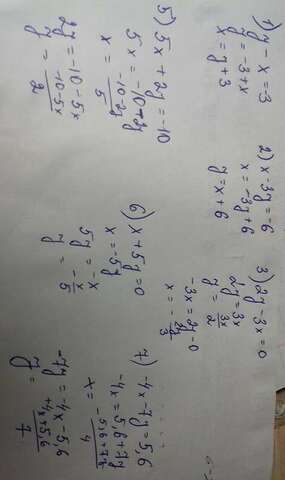 1) y - x = -3
y = -3 + x
x = y + 3
2) x - 3y = -6
x = -3y + 6
y = x + 6
3) 2y - 3x = 0
2y = 3x
y = 3x/2
-3x = 2y - 0
x = -2y/3
5) 5x + 2y = -10
5x = -10 - 2y
x = -10-2y/5
2y = -10 - 5x
y = -10-5x/2
6) x + 5y = 0
x = -5y
5y = -x
y = -x/5
7) -4x - 7y = 5,6
-4x = 5,6 + 7y
x = -5,6+7y/4
-7y = -4x - 5,6
y = +4x+5,6/7